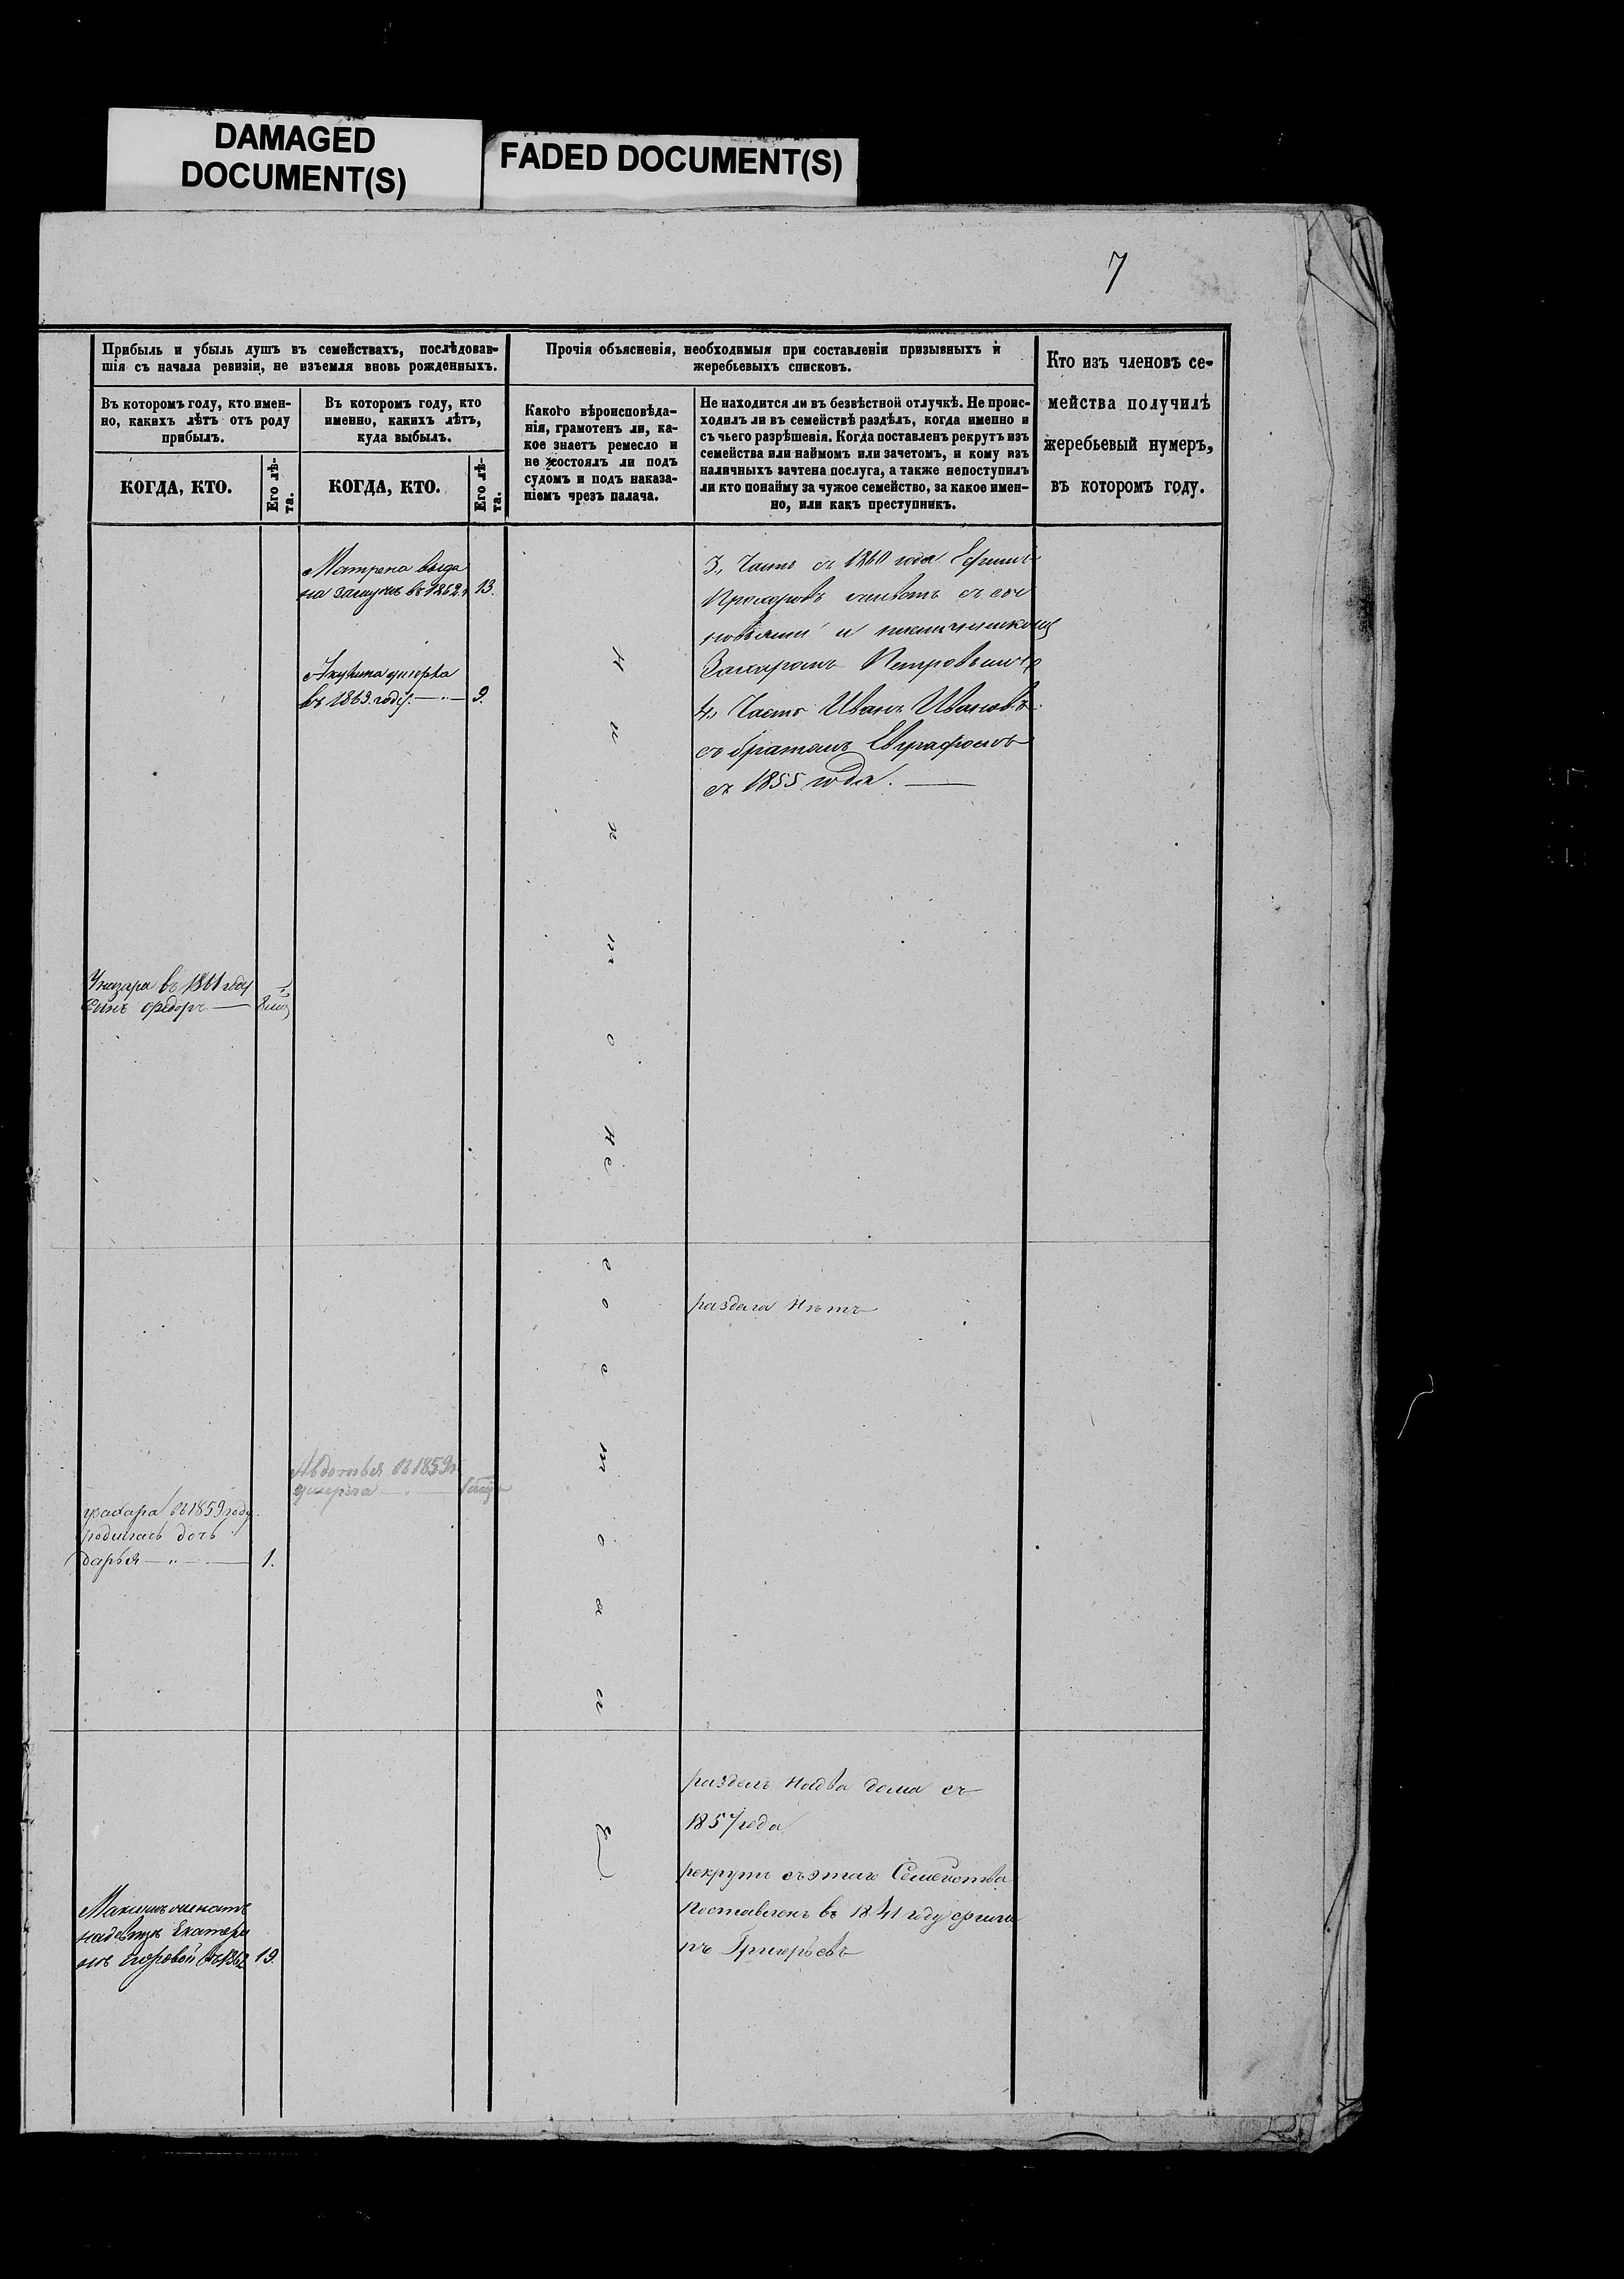 DAMAGED
DOCUMENT(S)
FADED DOCUMENT(S)
7
Прибыль и убыль душъ въ семействахъ, послѣдовав-
шія съ начала ревизіи, не изъемля вновь рожденныхъ.
Въ которомъ году, кто имен-
но, какихъ лѣтъ отъ роду
прибылъ.
КОГДА, КТО.
Его лѣ-
та.
Въ которомъ году, кто
именно, какихъ лѣтъ,
куда выбылъ.
КОГДА, КТО.
Его лѣ-
та.
Прочія объясненія, необходимыя при составленіи призывныхъ и
жеребьевыхъ списковъ.
Какого вѣроисповѣда-
нія, грамотенъ ли, ка-
кое знаетъ ремесло и
не состоялъ ли подъ
судомъ и подъ наказа-
ніемъ чрезъ палача.
Не находится ли въ безвѣстной отлучкѣ. Не проис-
ходилъ ли въ семействѣ раздѣлъ, когда именно и
съ чьего разрѣшенія. Когда поставленъ рекрутъ изъ
семейства или наймомъ или зачетомъ, и кому изъ
наличныхъ зачтена послуга, а также непоступилъ
ли кто понайму за чужое семейство, за какое имен-
но, или какъ преступникъ.
Кто изъ членовъ се-
мейства получилъ
жеребьевый нумеръ,
въ которомъ году.
Матрена выда
на замужъ въ 1862 г 13.
Акулина умерла
въ 1863 году. 9.
3, Часть съ 1860 года Ефимъ
Прохоровъ съ сы
новьями и племянникомъ
Захаромъ Петровымъ
4, Часть Иванъ Ивановъ
съ братомъ Евграфомъ
съ 1855 года.
У назара въ 1861 году
Сынъ Федоръ
раздела нѣтъ
Авдотья въ 1859 г
умерла
у захара въ 1859 году
родилась дочь
дарья 1.
н и к т о не с о с т о я л
разделъ на два дома съ
1857 года
рекрутъ съ этаго Семейства
поставленъ въ 1841 году филип
пъ Григорьевъ
Максимъ женатъ
на девице Екатери
не Егоровой въ 1862 19.